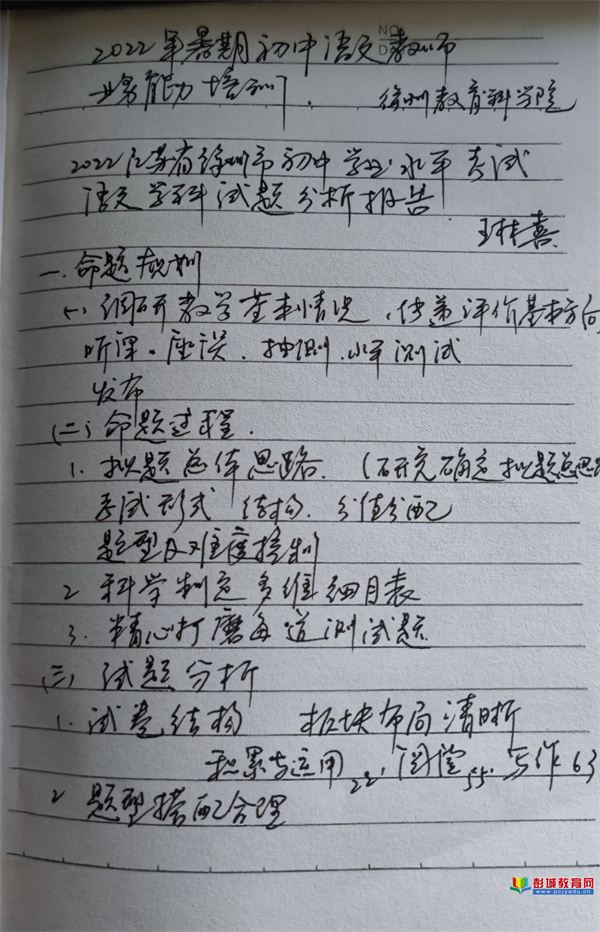 NO
D
2022年暑期初中语文教师
业务能力培训. 徐州教育科学院
2022江苏省徐州市初中学业水平考试
语文学科试题分析报告
王林喜
一.命题规划
(一)调研教学基本情况,传递评价基本方向
听课、座谈、抽测、水平测试
发布
(二)命题过程.
1.拟题总体思路. (研究确定拟题总思路
考试形式 结构. 分值分配
题型及难度控制
2 科学制定多维细目表
3.精心打磨每道测试题
(三)试题分析
1.试卷结构 板块布局清晰
积累与运用22' 阅读55' 写作63
2 题型搭配合理
彭城教育网
www.pcjyedu.cn